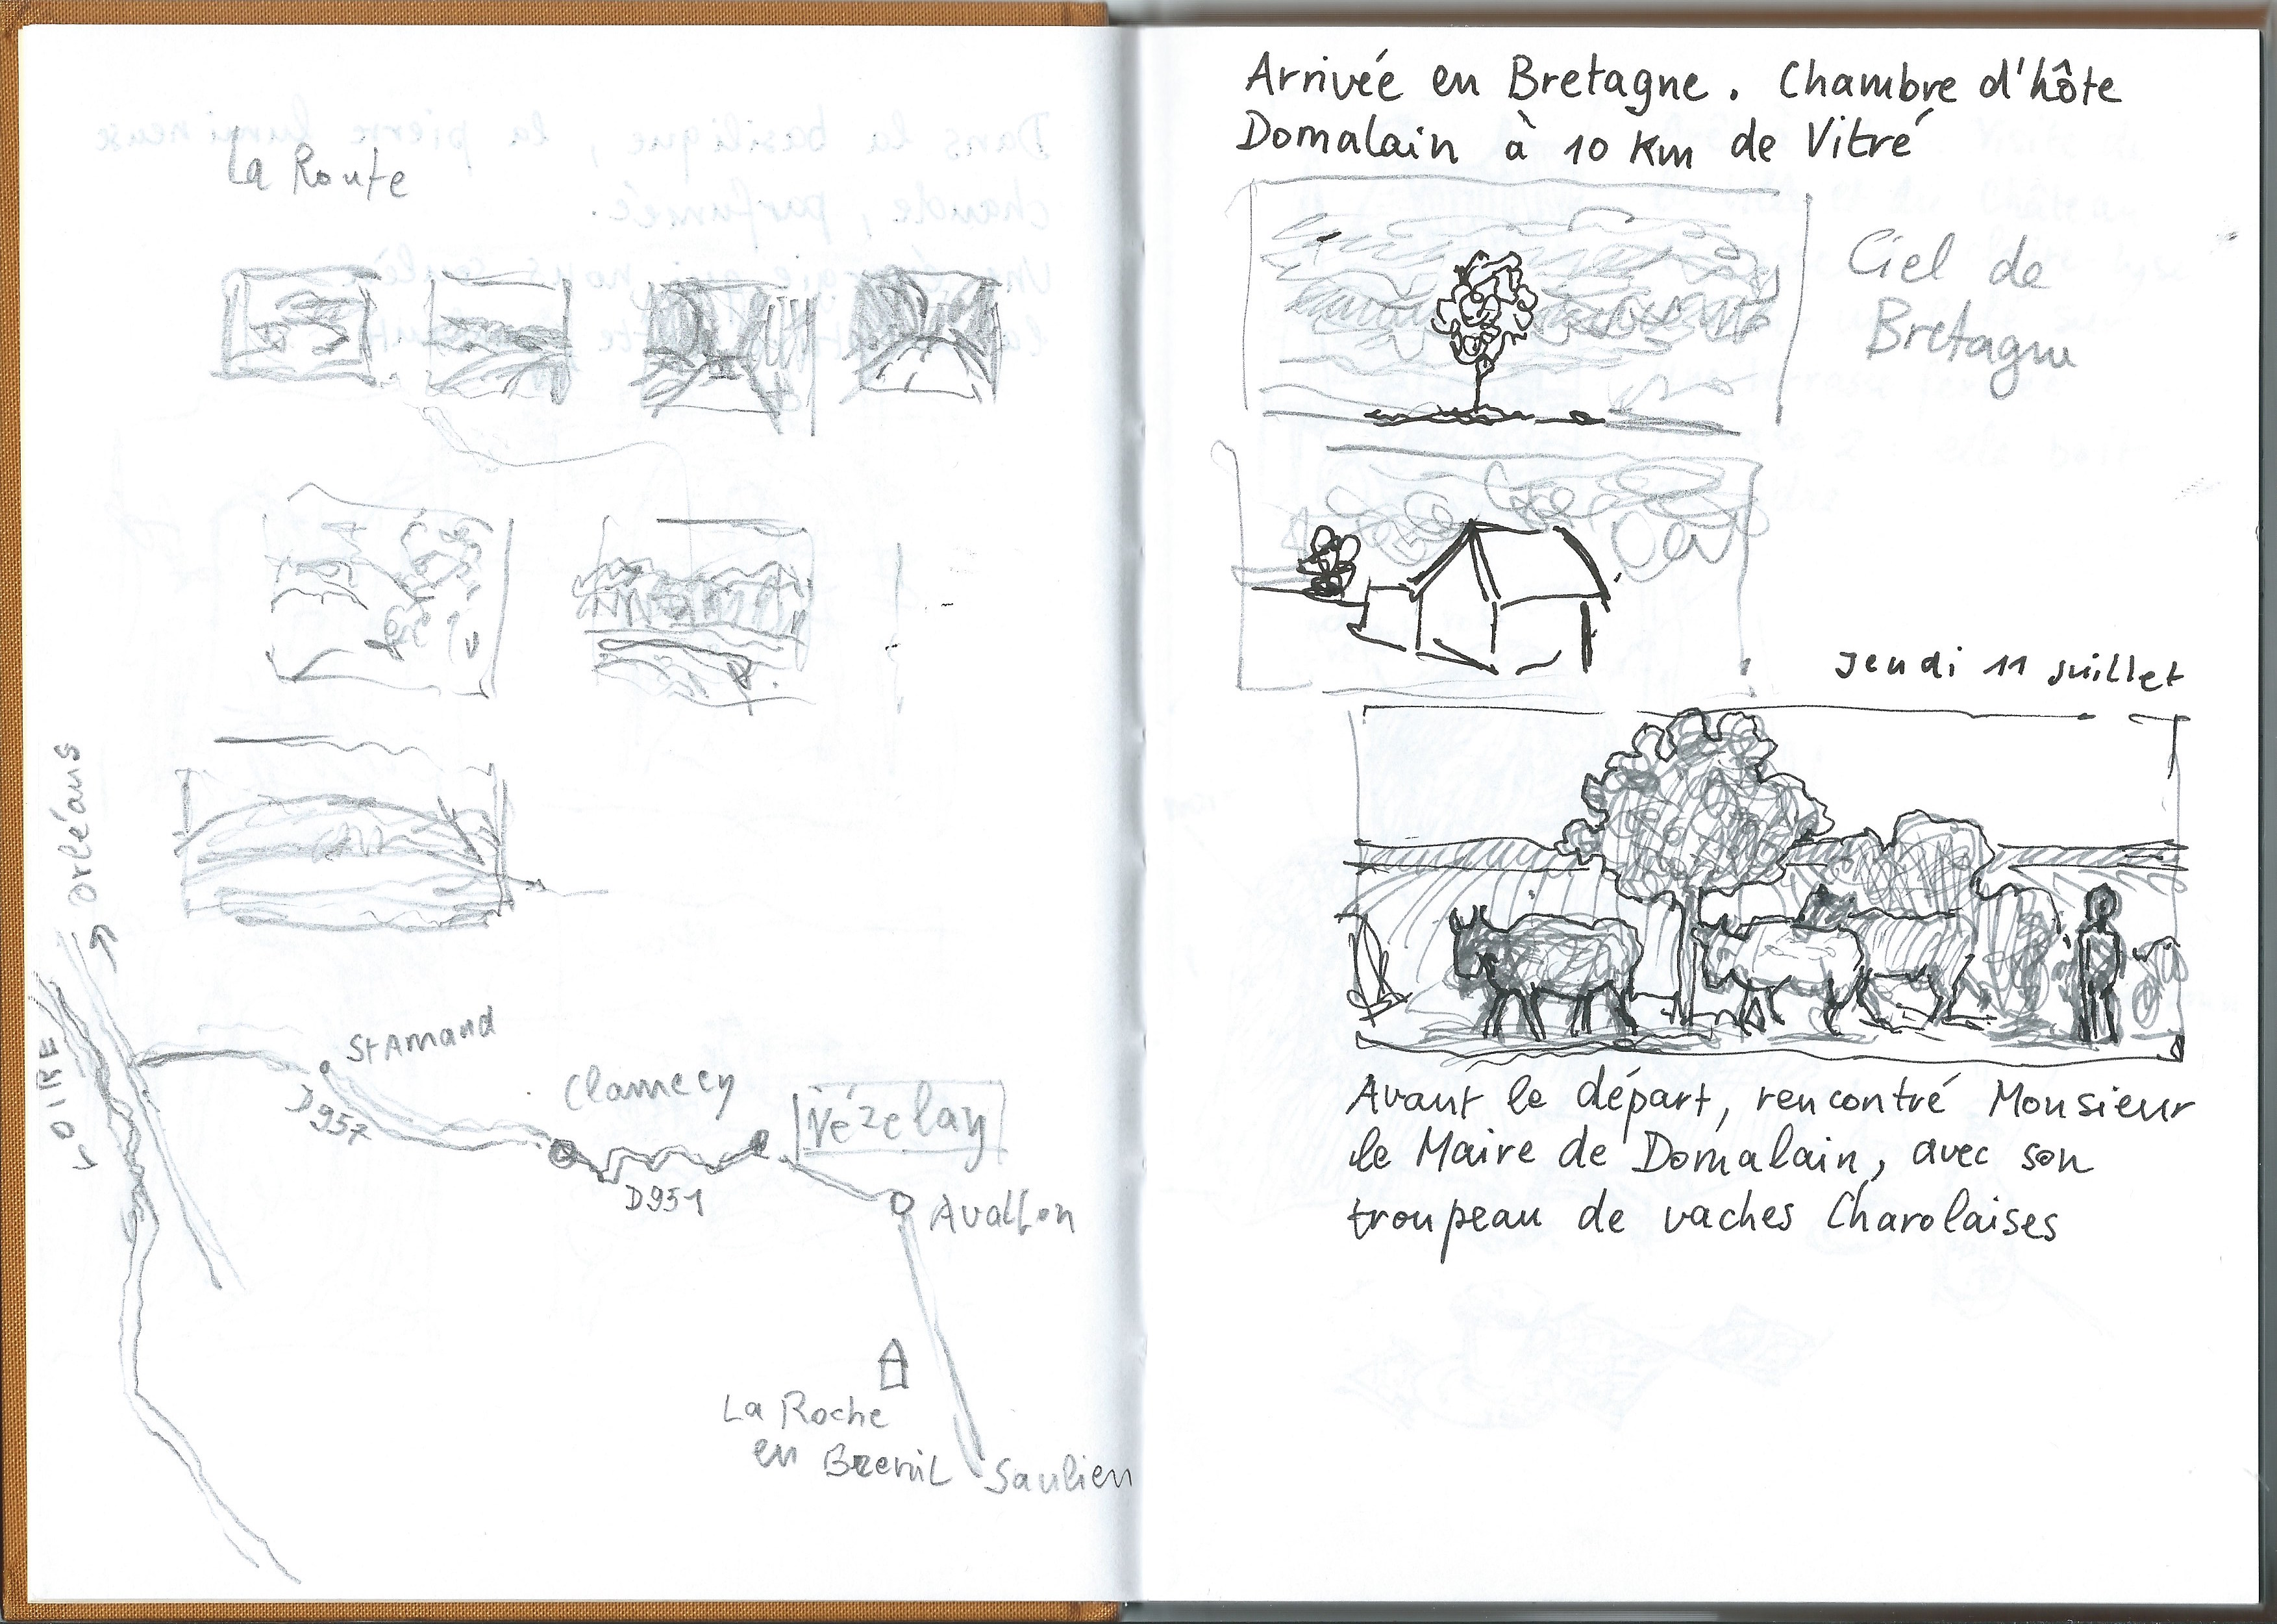 La Route
orléans
LOIRE
St Amand
D957
Clamecy
Vézelay
D951
Avallon
La Roche
en Brenil
Saulieu
Arrivée en Bretagne. Chambre d'hôte
Domalain à 10 Km de Vitré
Ciel de
Bretagne
Jeudi 11 juillet
Avant le départ, rencontré Monsieur
le Maire de Domalain, avec son
troupeau de vaches Charolaises